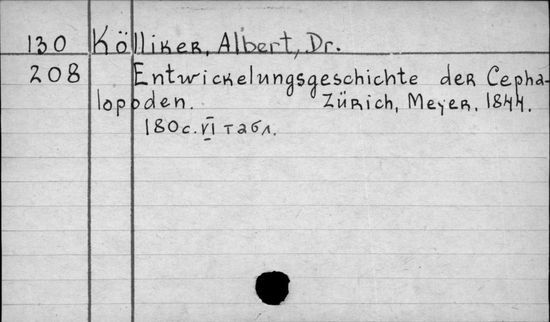 130 Kölliker, Albert, Dr.
208 Entwickelungsgeschichte der Cepha-
lopoden. Zürich, Meyer, 1844.
180 с. VI табл.